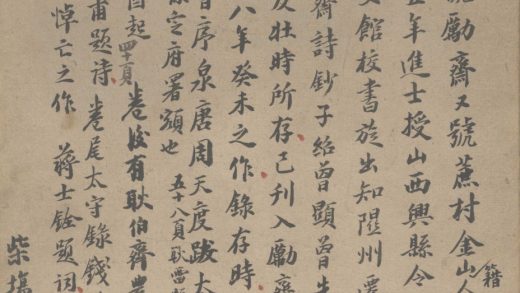 勵齋又號蔗村金山人籍
五年進士授山西興縣令
文館校書旋出知隰州
齋詩鈔子紹曾顯曾
及壯時所存已刊入勵齋
八年癸未之作錄存時
序泉唐周天度跋大
定府署額也五十八頁
酉起四十頁卷後有耿伯齊
甫題詩卷尾太守錄錢
悼亡之作蔣士銓題詞
柴塢